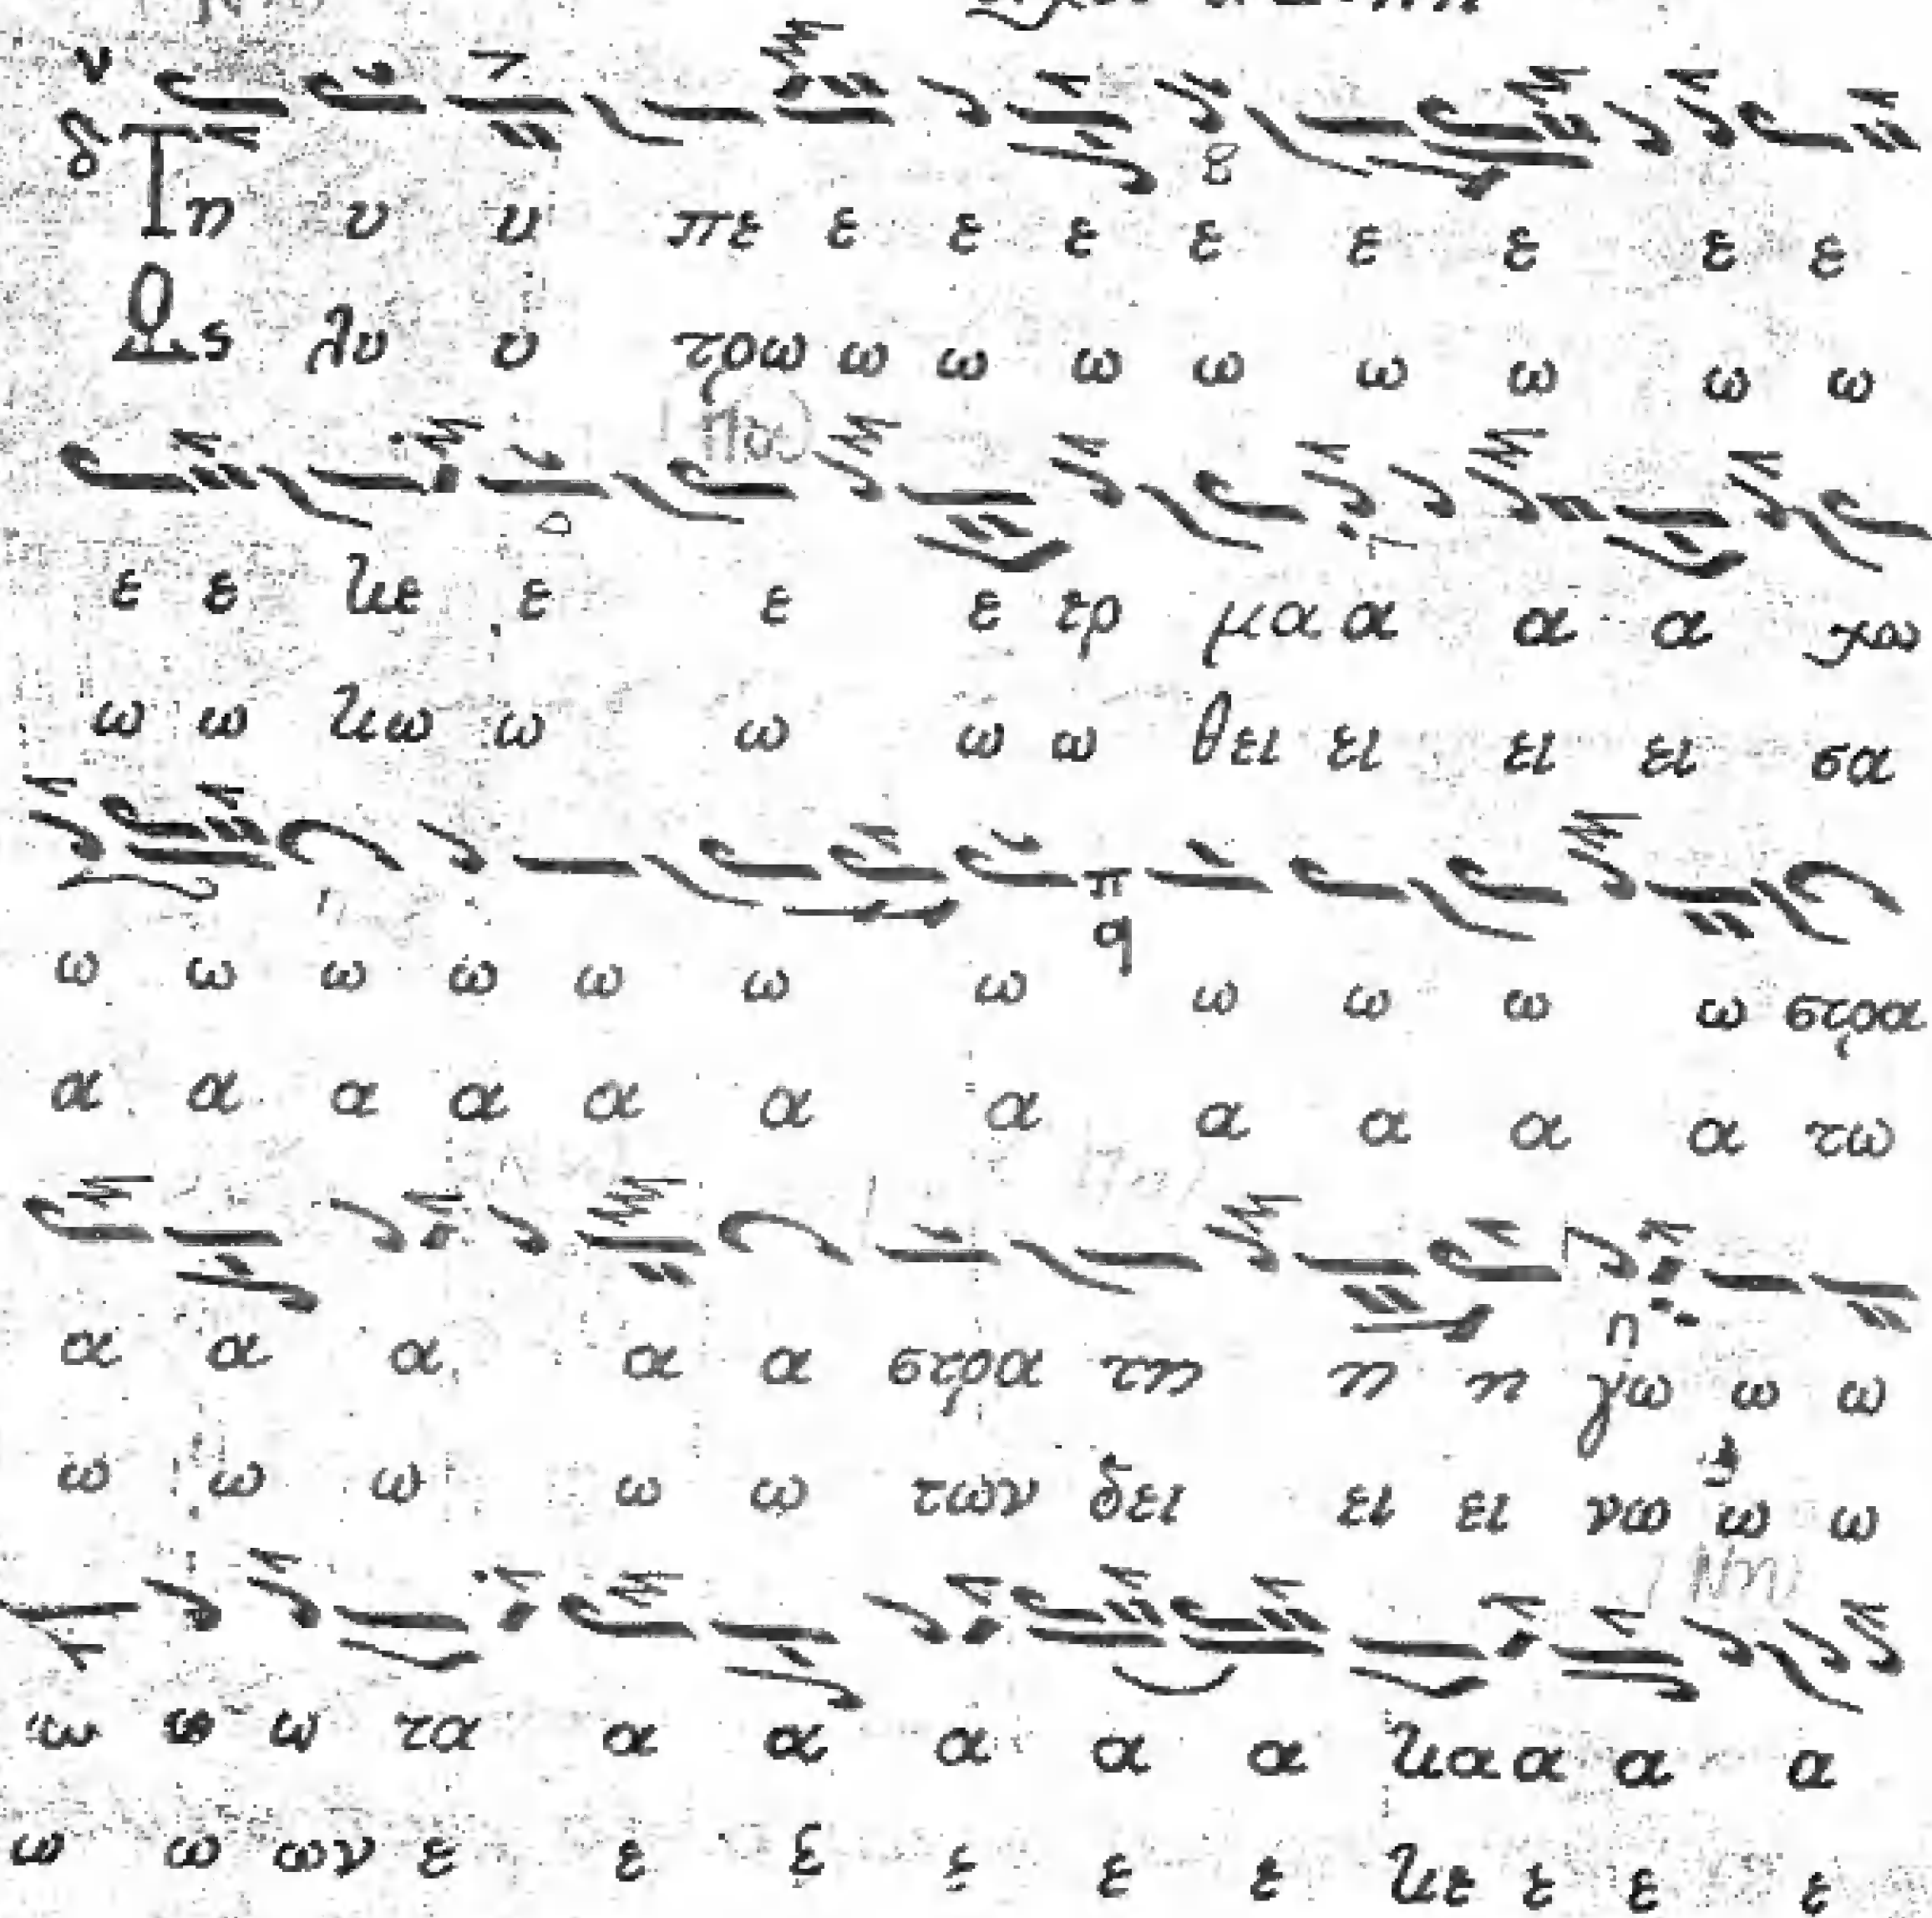 Τη υ υ πε ε ε ε ε ε ε ε ε
Ως λυ υ τρω ω ω ω ω ω ω ω ω
ε ε κε ε ε ε ερ μα α α α χω
ω ω κω ω ω ω ω θει ει ει ει σα
π
q
ω ω ω ω ω ω ω ω ω ω ω στρα
α α α α α α α α α α α τω
α α α α α στρα τη η η γω ω ω
ω ω ω ω ω των δει ει ει νω ω ω
ω ω ω τα α α α α α κα α α α
ω ω ων ε ε ε ε ε ε κε ε ε ε